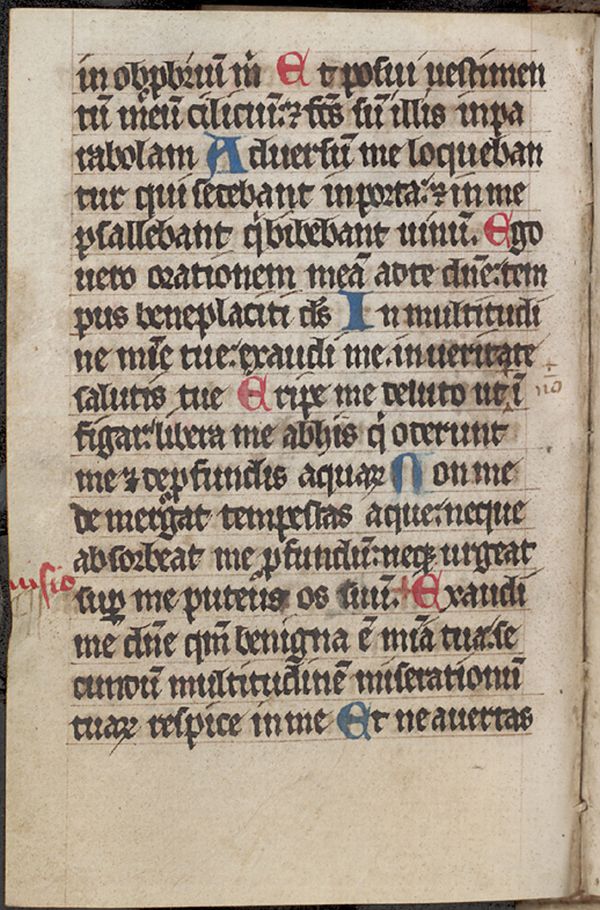 in obp̱briū m̄ Et posui uestimen
tū meū cilicium: ⁊ fc̄s sū illis inpa
rabolam Aduersū me loqueban
tur qui sedebant inporta: ⁊ in me
psallebant q̄ bibebant uinū. Ego
uero orationem meā ad te dn̄e: tem
pus beneplaciti ds̄ In multitudi
ne mīe tue: exaudi me. in ueritate
salutis tue Eripe me deluto ut ī
figar: libera me abhis q̄ oderunt
me ⁊ de pfundis aquaꝝ Non me
demergat tempestas aque: neque
absorbeat me pfundū: neqꝫ urgeat
sup̄ me puteus os suū. + Exaudi
me dn̄e qm̄ benigna ē mīa tua: se
cundū multitudinē miserationū
tuaꝝ respice in me Et ne auertas